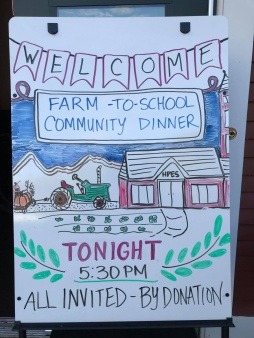 WELCOME
FARM-TO-SCHOOL
COMMUNITY DINNER
HPES
TONIGHT
5:30 PM
ALL INVITED - BY DONATION